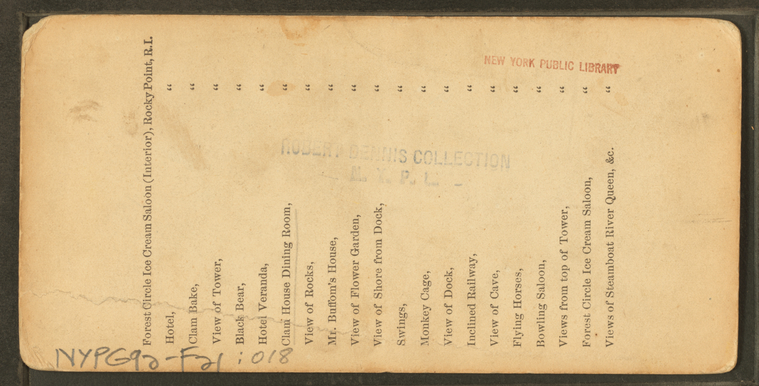 Forest Circle Ice Cream Saloon (Interior), Rocky Point, R.I.
Hotel, "
Clam Bake, "
View of Tower, "
Black Bear, "
Hotel Veranda, "
Clam House Dining Room, "
View of Rocks, "
Mr. Buffom's House, "
View of Flower Garden, "
View of Shore from Dock, "
Swings, "
Monkey Cage, "
View of Dock, "
Inclined Railway, "
View of Cave, "
Flying Horses, "
Bowling Saloon, "
Views from top of Tower, "
Forest Circle Ice Cream Saloon, "
Views of Steamboat River Queen, &c. "
NEW YORK PUBLIC LIBRARY
ROBERT DENNIS COLLECTION
N. Y. P. L.
NYPG92-F21 : 018